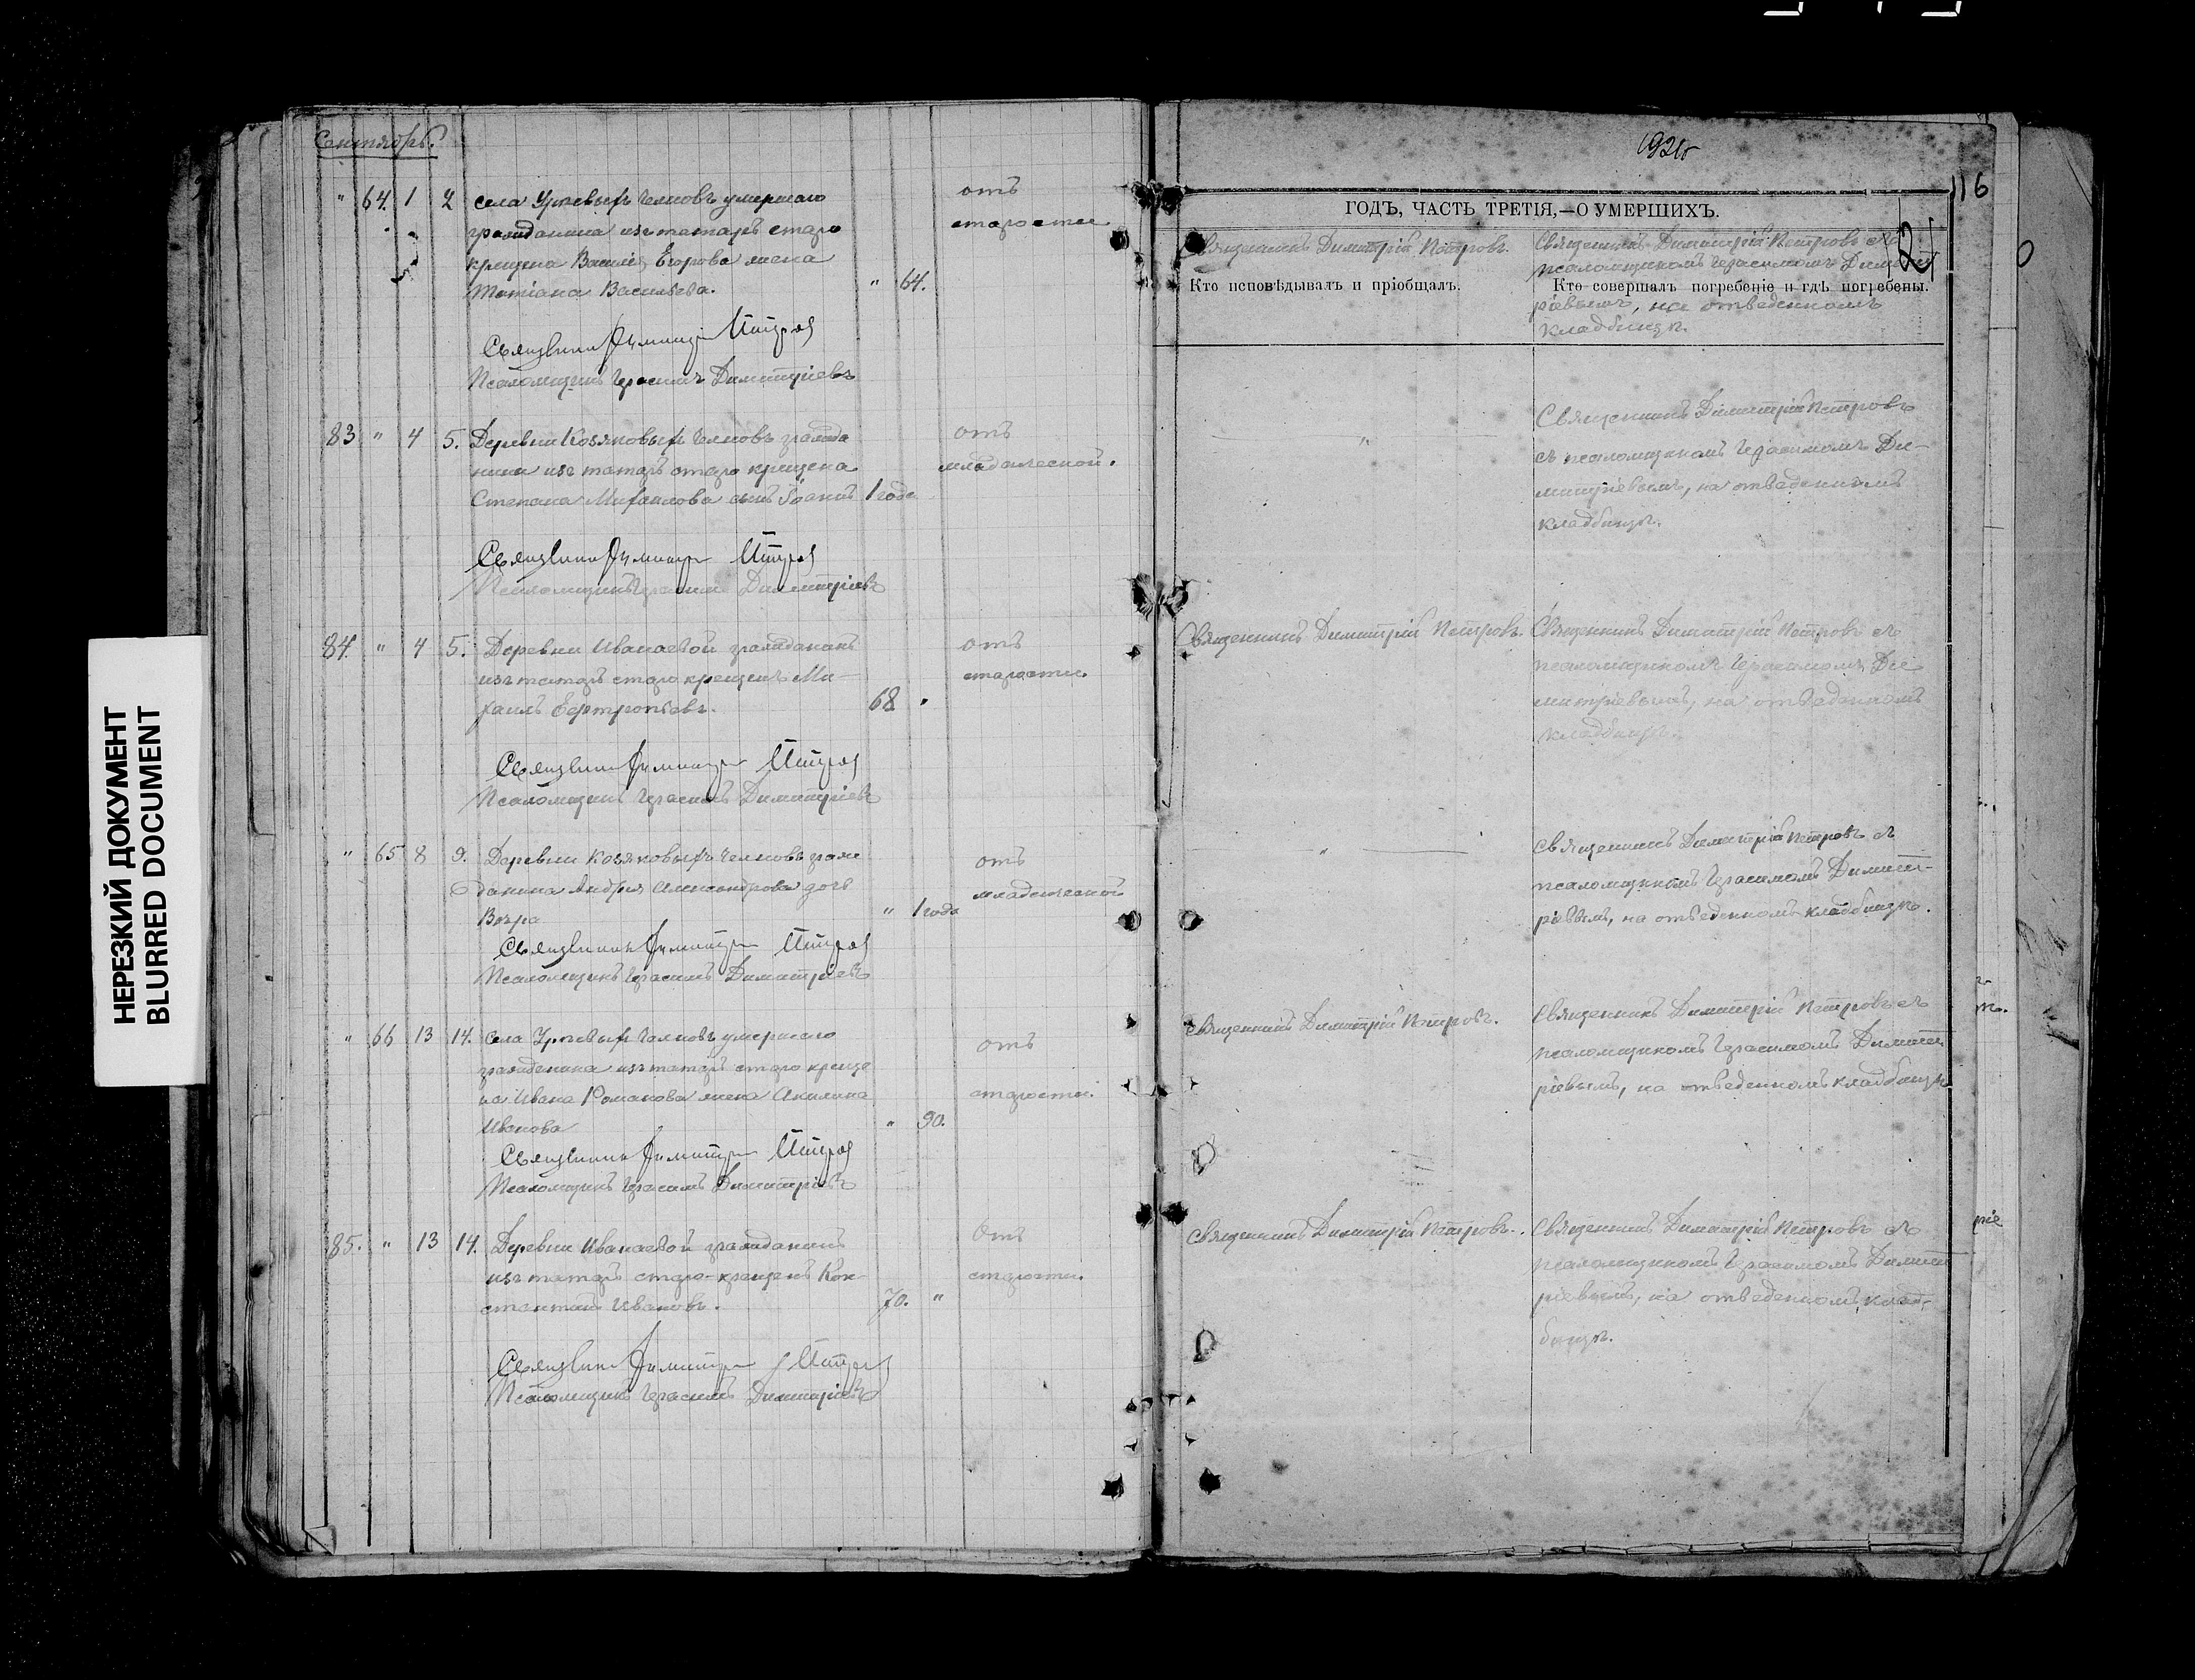 НЕРЕЗКИЙ ДОКУМЕНТ
BLURRED DOCUMENT
Сентябрь.
" 64. 1 2 села Уреевыхъ Челновъ умершаго
гражданина изъ татаръ старо
крещена Василія Егорова жена
Татіана Васильева. " 64.
отъ
старости
Священникъ Димитрій Петровъ
Псаломщикъ Герасимъ Димитріевъ
83 " 4 5. Деревни Козяковыхъ Челновъ гражда
нина изъ татаръ старо крещена
Степана Михаилова сынъ Іоаннъ 1 года
отъ
младенческой.
Священникъ Димитрій Петровъ
Псаломщикъ Герасимъ Димитріевъ
84. " 4 5. Деревни Иванаевой гражданинъ
изъ татаръ старо крещенъ Ми-
хаилъ 68 "
отъ
старости.
Священникъ Димитрій Петровъ
Псаломщикъ Герасимъ Димитріевъ
" 65 8 9. Деревни Козяковыхъ Челновъ граж
данина Андрея Александрова дочь
Вѣра " 1 года
отъ
младенческой
Священникъ Димитрій Петровъ
Псаломщикъ Герасимъ Димитріевъ
" 66 13 14. села Уреевыхъ Челновъ умершаго
гражданина изъ татаръ старо креще
на Ивана Романова жена Акилина
Иванова " 90.
отъ
старости.
Священникъ Димитрій Петровъ
Псаломщикъ Герасимъ Димитріевъ
85. " 13 14. Деревни Иванаевой гражданинъ
изъ татаръ старо-крещенъ Кон-
стантинъ Ивановъ. 70. "
Отъ
старости.
Священникъ Димитрій Петровъ
Псаломщикъ Герасимъ Димитріевъ
1921
116
ГОДЪ, ЧАСТЬ ТРЕТІЯ,—О УМЕРШИХЪ.
21
Кто исповѣдывалъ и пріобщалъ.
Кто совершалъ погребеніе и гдѣ погребены.
Священникъ Димитрій Петровъ.
Священникъ Димитрій Петровъ съ
псаломщикомъ Герасимомъ Димит
ріевымъ, на отведенномъ
кладбищѣ.
"
Священникъ Димитрій Петровъ
съ псаломщикомъ Герасимомъ Ди-
митріевымъ, на отведенномъ
кладбищѣ.
Священникъ Димитрій Петровъ.
Священникъ Димитрій Петровъ съ
псаломщикомъ Герасимомъ Ди
митріевымъ, на отведенномъ
кладбищѣ.
"
Священникъ Димитрій Петровъ съ
псаломщикомъ Герасимомъ Димит-
ріевымъ, на отведенномъ кладбищѣ.
Священникъ Димитрій Петровъ.
Священникъ Димитрій Петровъ съ
псаломщикомъ Герасимомъ Димит
ріевымъ, на отведенномъ кладбищѣ
Священникъ Димитрій Петровъ.
Священникъ Димитрій Петровъ съ
псаломщикомъ Герасимомъ Димит
ріевымъ, на отведенномъ клад-
бищѣ.